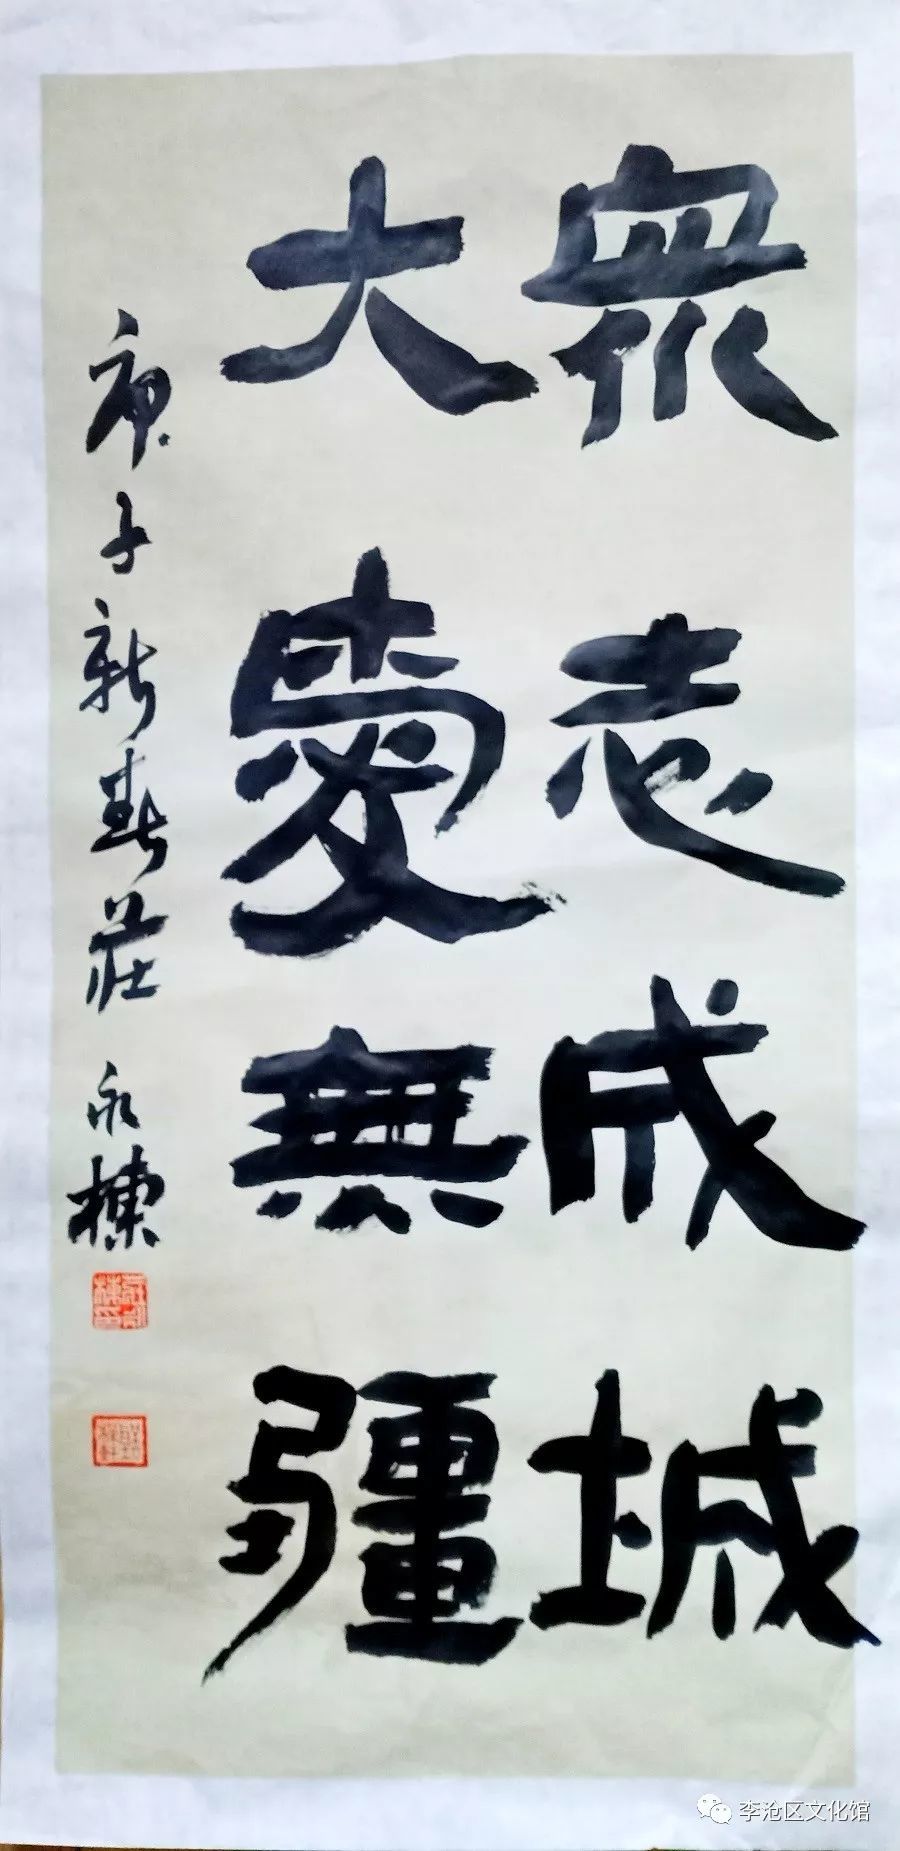 眾志成城
大愛無疆
庚子新春莊永棟
李沧区文化馆